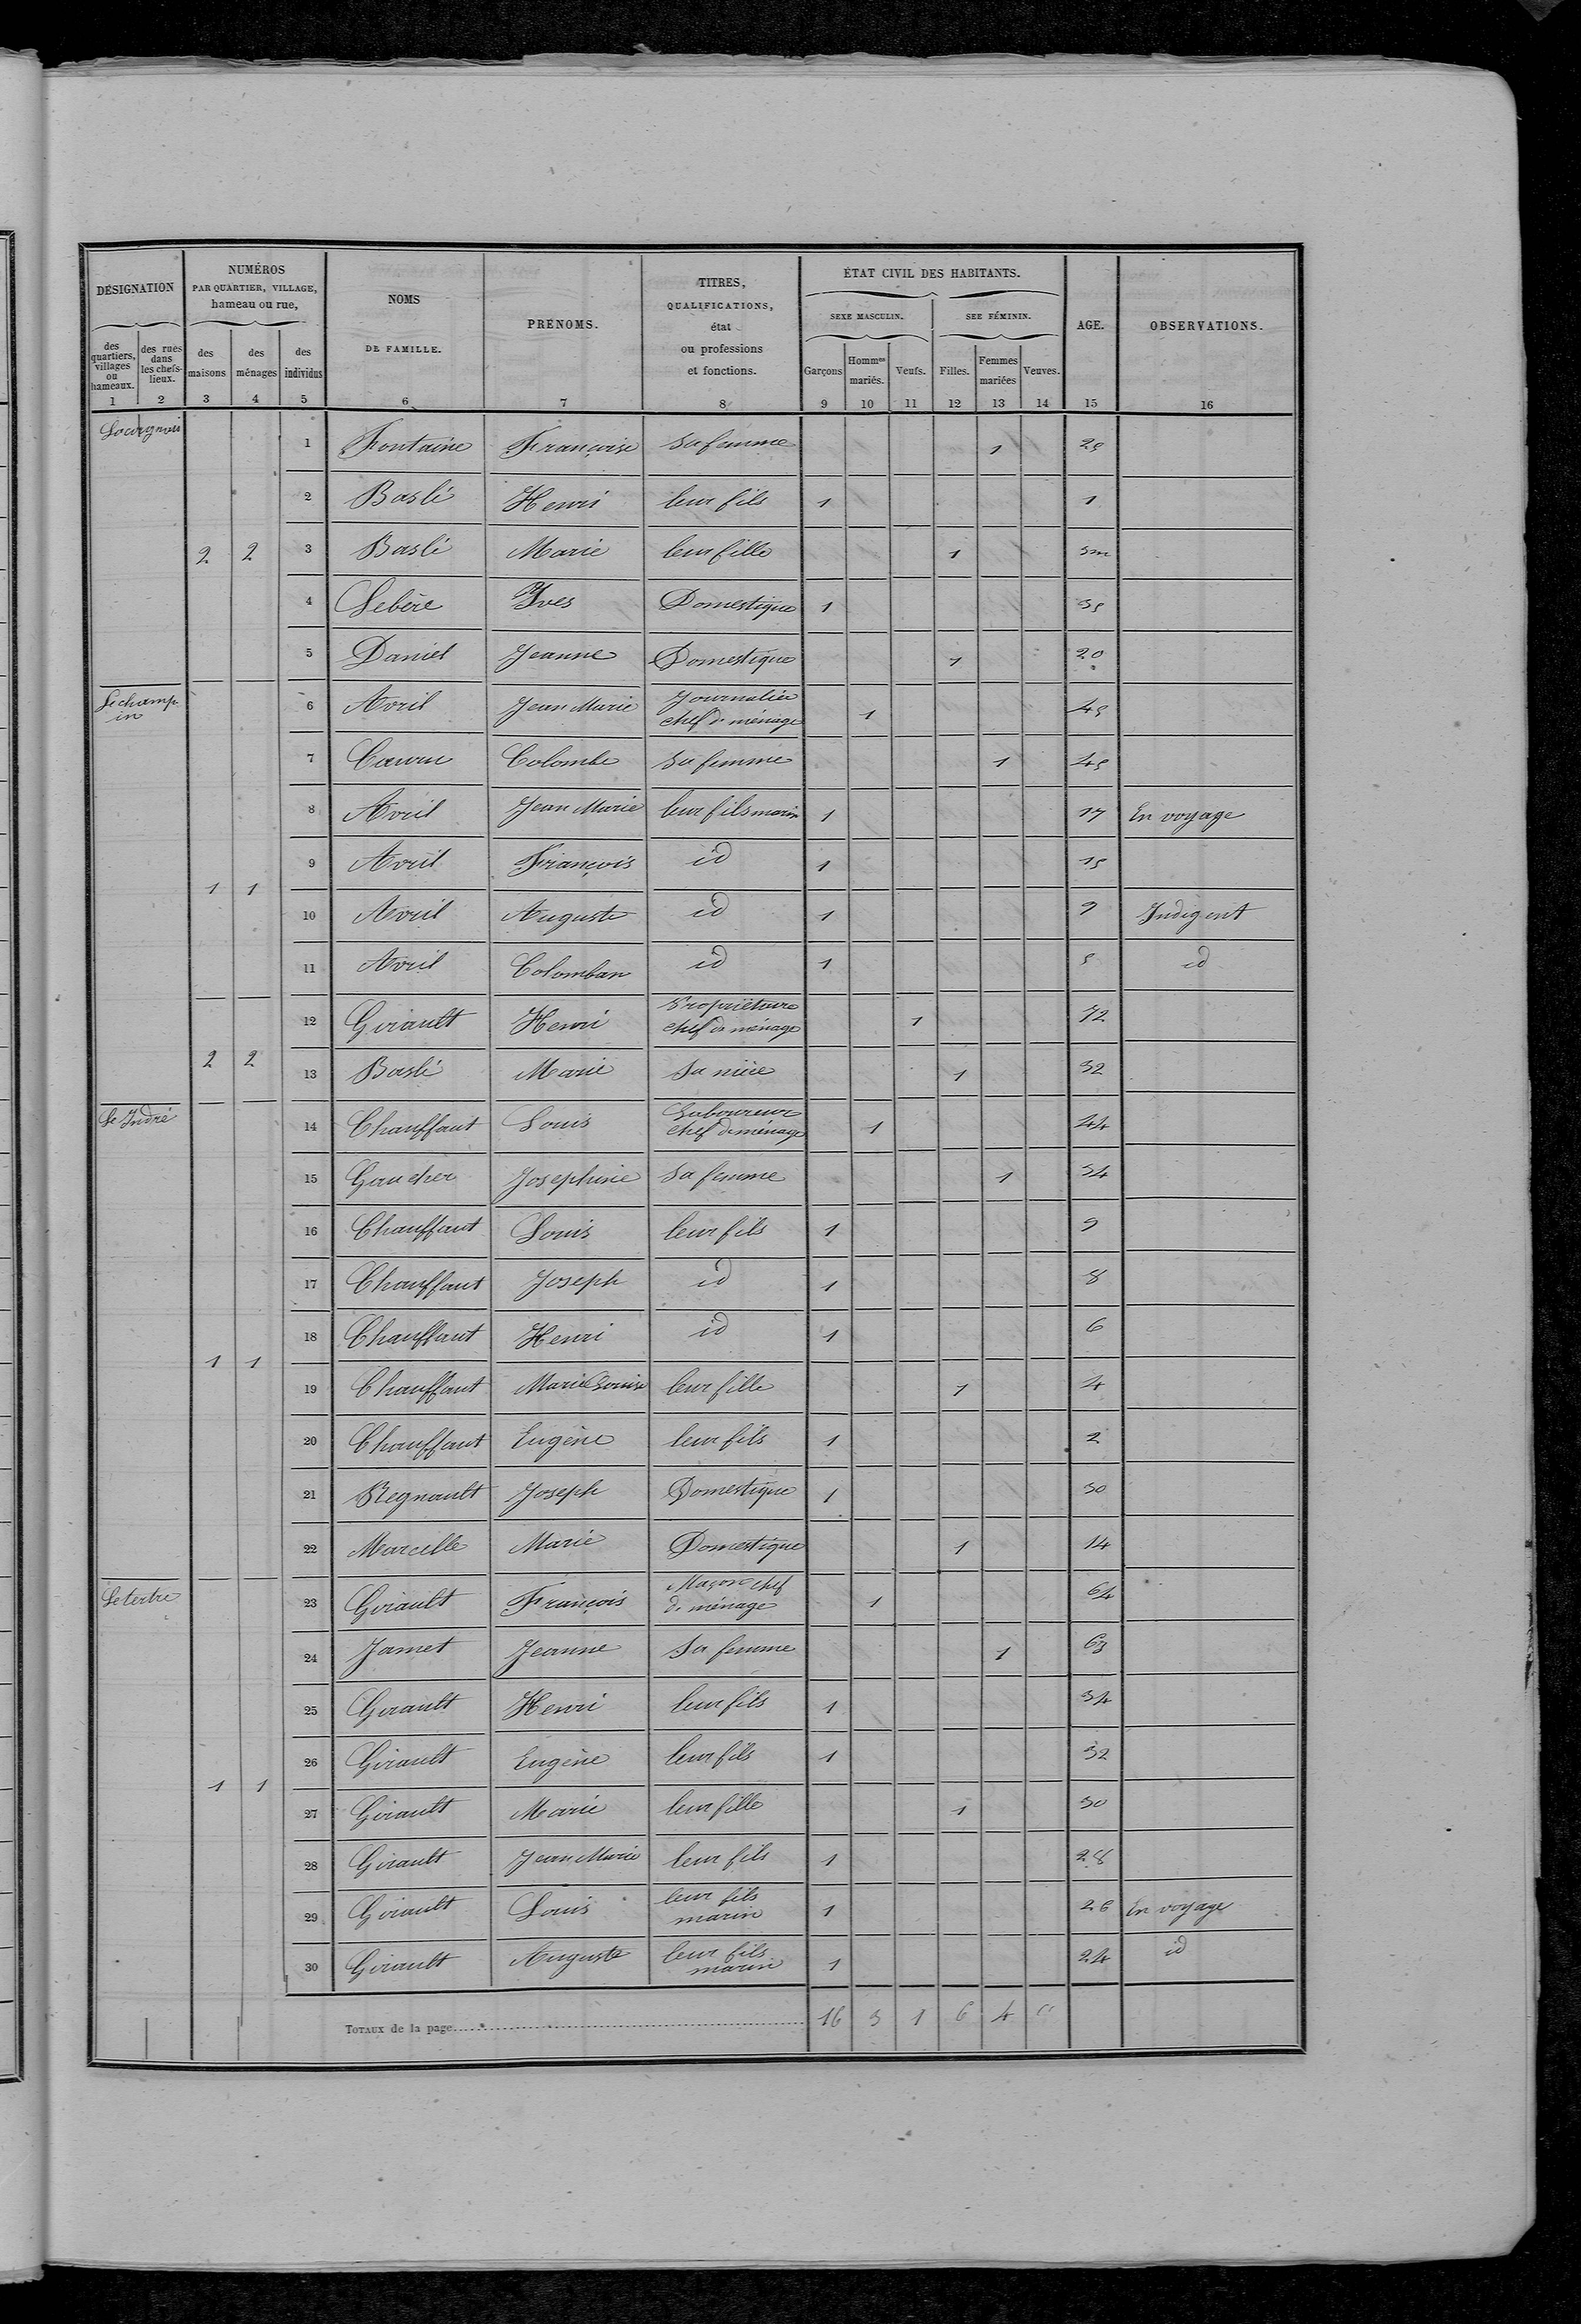 DÉSIGNATION | NUMÉROS PAR QUARTIER, VILLAGE, hameau ou rue, | NOMS DE FAMILLE. | PRÉNOMS. | TITRES, QUALIFICATIONS, état ou professions et fonctions. | ÉTAT CIVIL DES HABITANTS. | AGE. | OBSERVATIONS.
SEXE MASCULIN. | SEE FÉMININ.
des quartiers, villages ou hameaux. | des rues dans les chefs-lieux. | des maisons | des ménages | des individus | Garçons | Hommes mariés. | Veufs. | Filles. | Femmes mariées | Veuves.
1 | 2 | 3 | 4 | 5 | 6 | 7 | 8 | 9 | 10 | 11 | 12 | 13 | 14 | 15 | 16
1 | Fontaine | Françoise | sa femme | 1 | 25
2 | Baslé | Henri | leur fils | 1 | 1
2 | 2 | 3 | Baslé | Marie | leur fille | 1 | 3m
4 | Lebère | Yves | Domestique | 1 | 35
5 | Daniel | Jeanne | Domestique | 1 | 20
Lechamp in | 6 | Avril | Jean Marie | Journalier chef de ménage | 1 | 45
7 | Colombe | sa femme | 1 | 45
8 | Avril | Jean Marie | leur fils marin | 1 | 17 | En voyage
9 | Avril | François | id | 1 | 15
1 | 1
10 | Avril | Auguste | id | 1 | 9 | Indigent
11 | Avril | Colomban | id | 1 | 5 | id
12 | Girault | Henri | Propriétaire chef de ménage | 1 | 72
2 | 2
13 | Baslé | Marie | Sa nièce | 1 | 32
Le Indré | 14 | Chauffaut | Louis | Laboureur chef de ménage | 1 | 44
15 | Gaucher | Josephine | Sa femme | 1 | 34
16 | Chauffaut | Louis | leur fils | 1 | 9
17 | Chauffaut | Joseph | id | 1 | 8
18 | Chauffaut | Henri | id | 1 | 6
1 | 1
19 | Chauffaut | Marie Louise | leur fille | 1 | 4
20 | Chauffaut | Eugène | leur fils | 1 | 2
21 | Regnault | Joseph | Domestique | 1 | 30
22 | Marcelle | Marie | Domestique | 1 | 14
Le tertre | 23 | Girault | François | Maçon chef de ménage | 1 | 64
24 | Jamet | Jeanne | Sa femme | 1 | 63
25 | Girault | Henri | leur fils | 1 | 34
26 | Girault | Eugène | leur fils | 1 | 32
1 | 1
27 | Girault | Marie | leur fille | 1 | 30
28 | Girault | Jean Marie | leur fils | 1 | 28
29 | Girault | Louis | leur fils marin | 1 | 26 | En voyage
30 | Girault | Auguste | leur fils marin | 1 | 24 | id
TOTAUX de la page | 16 | 3 | 1 | 6 | 4 | "